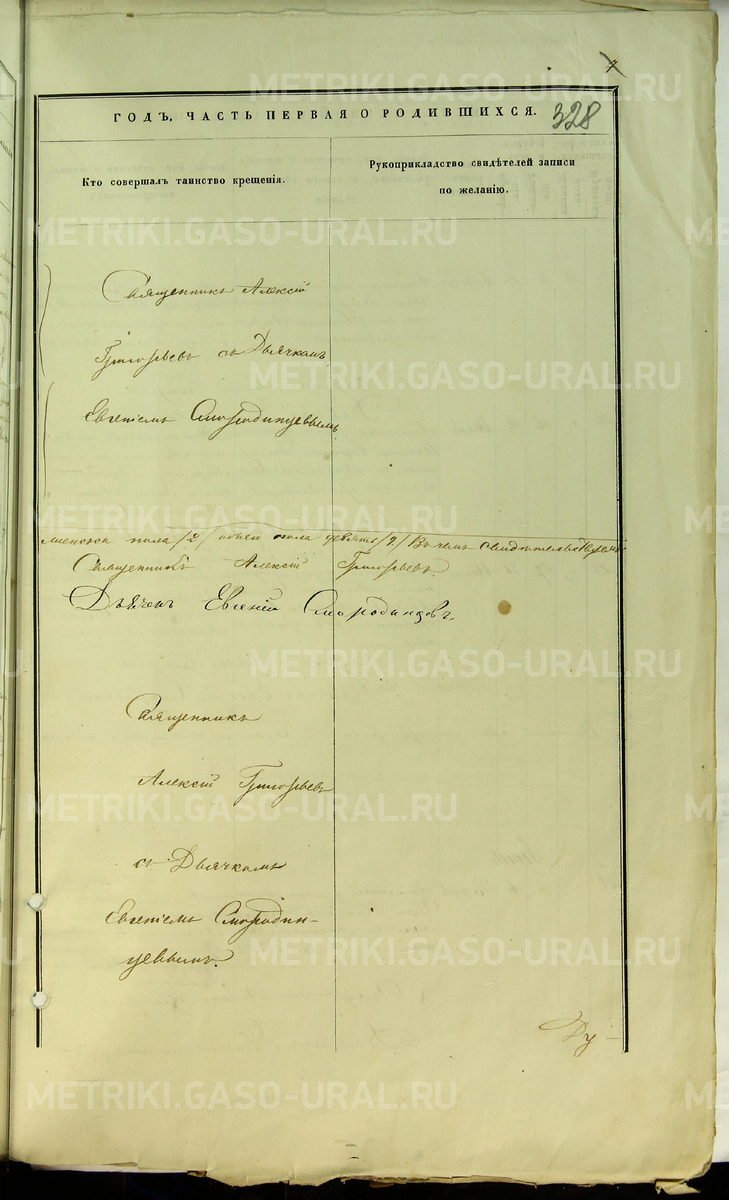 ГОДЪ, ЧАСТЬ ПЕРВАЯ О РОДИВШИХСЯ.
328
Кто совершалъ таинство крещенія.
Рукоприкладство свидѣтелей записи
по желанію.
Священникъ Алексій
Григорьевъ съ Дьячкомъ
Евгеніемъ Смородинцевымъ.
женска пола /2/ обоего пола девять /9/ Въ чемъ свидѣтельствуемъ
Священникъ Алексій Григорьевъ.
Дьячекъ Евгеній Смородинцовъ.
Священникъ
Алексій Григорьевъ
съ Дьячкомъ
Евгеніемъ Смородин-
цевымъ.
Ду-
METRIKI.GASO-URAL.RU